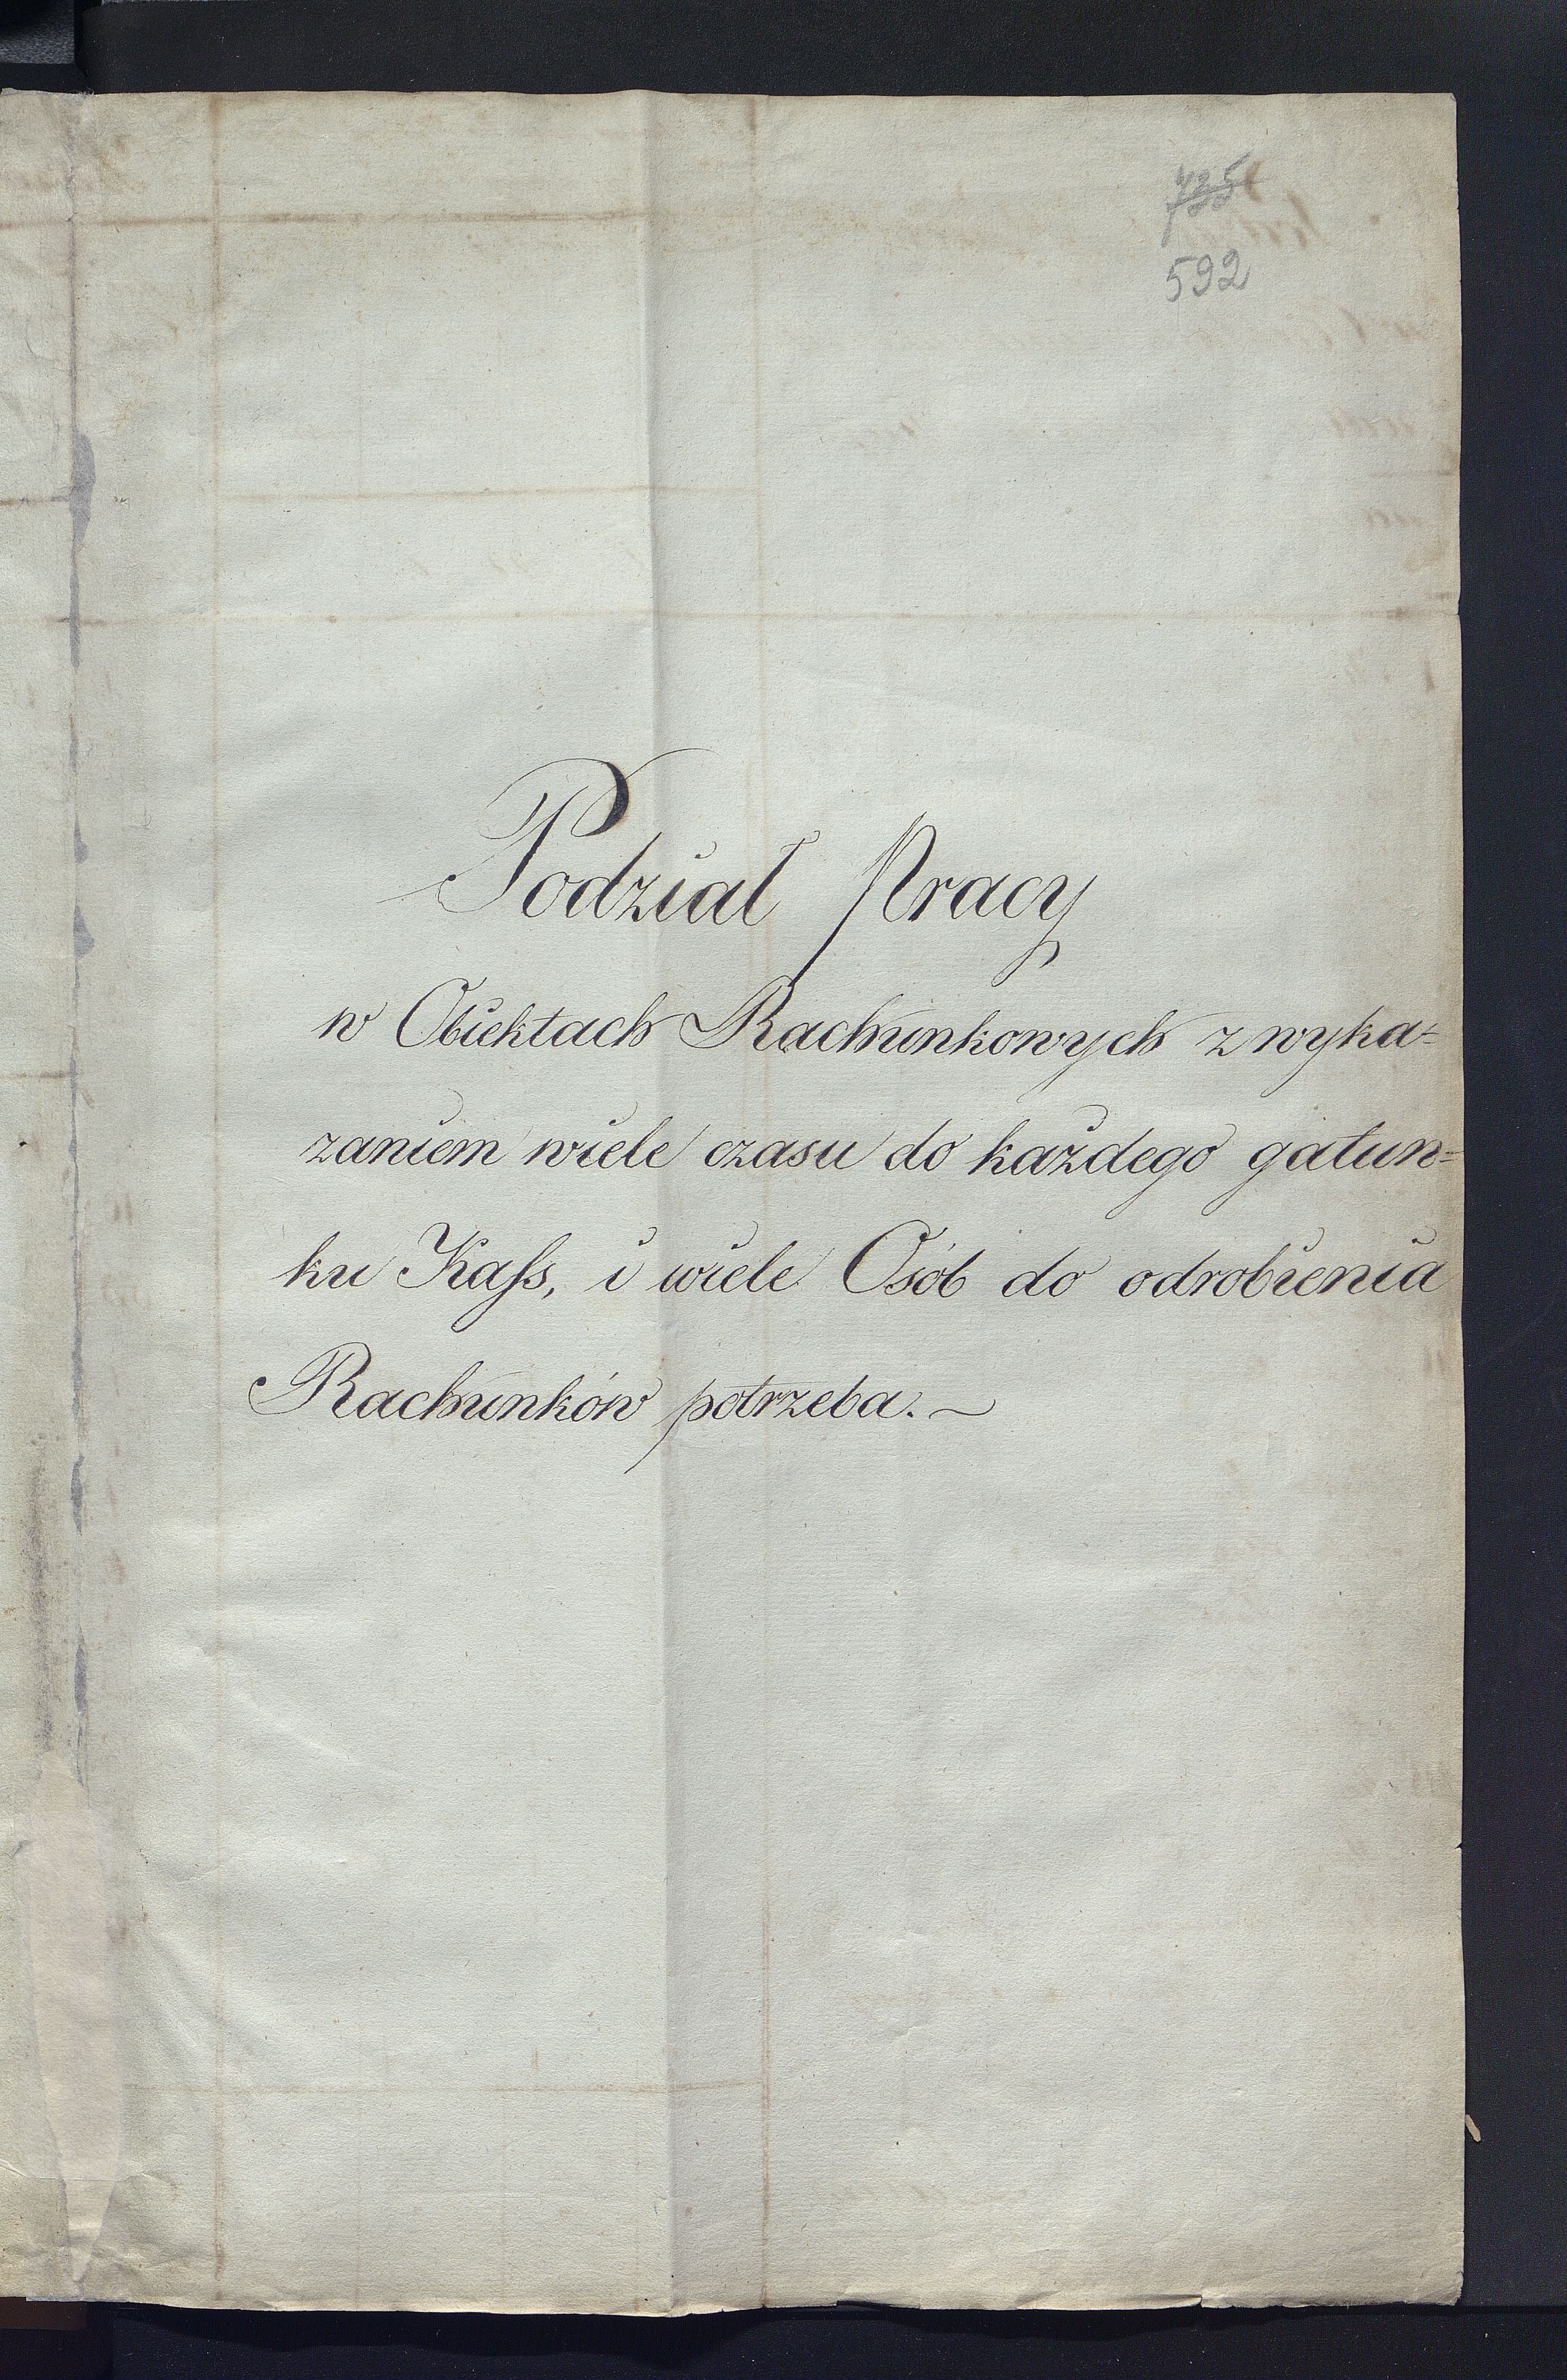 735
592
Podział Pracy
w Obiektach Rachunkowych z wyka=
zaniem wiele czasu do każdego gatun=
ku Kass, i wiele Osób do odrobienia
Rachunków potrzeba. ~